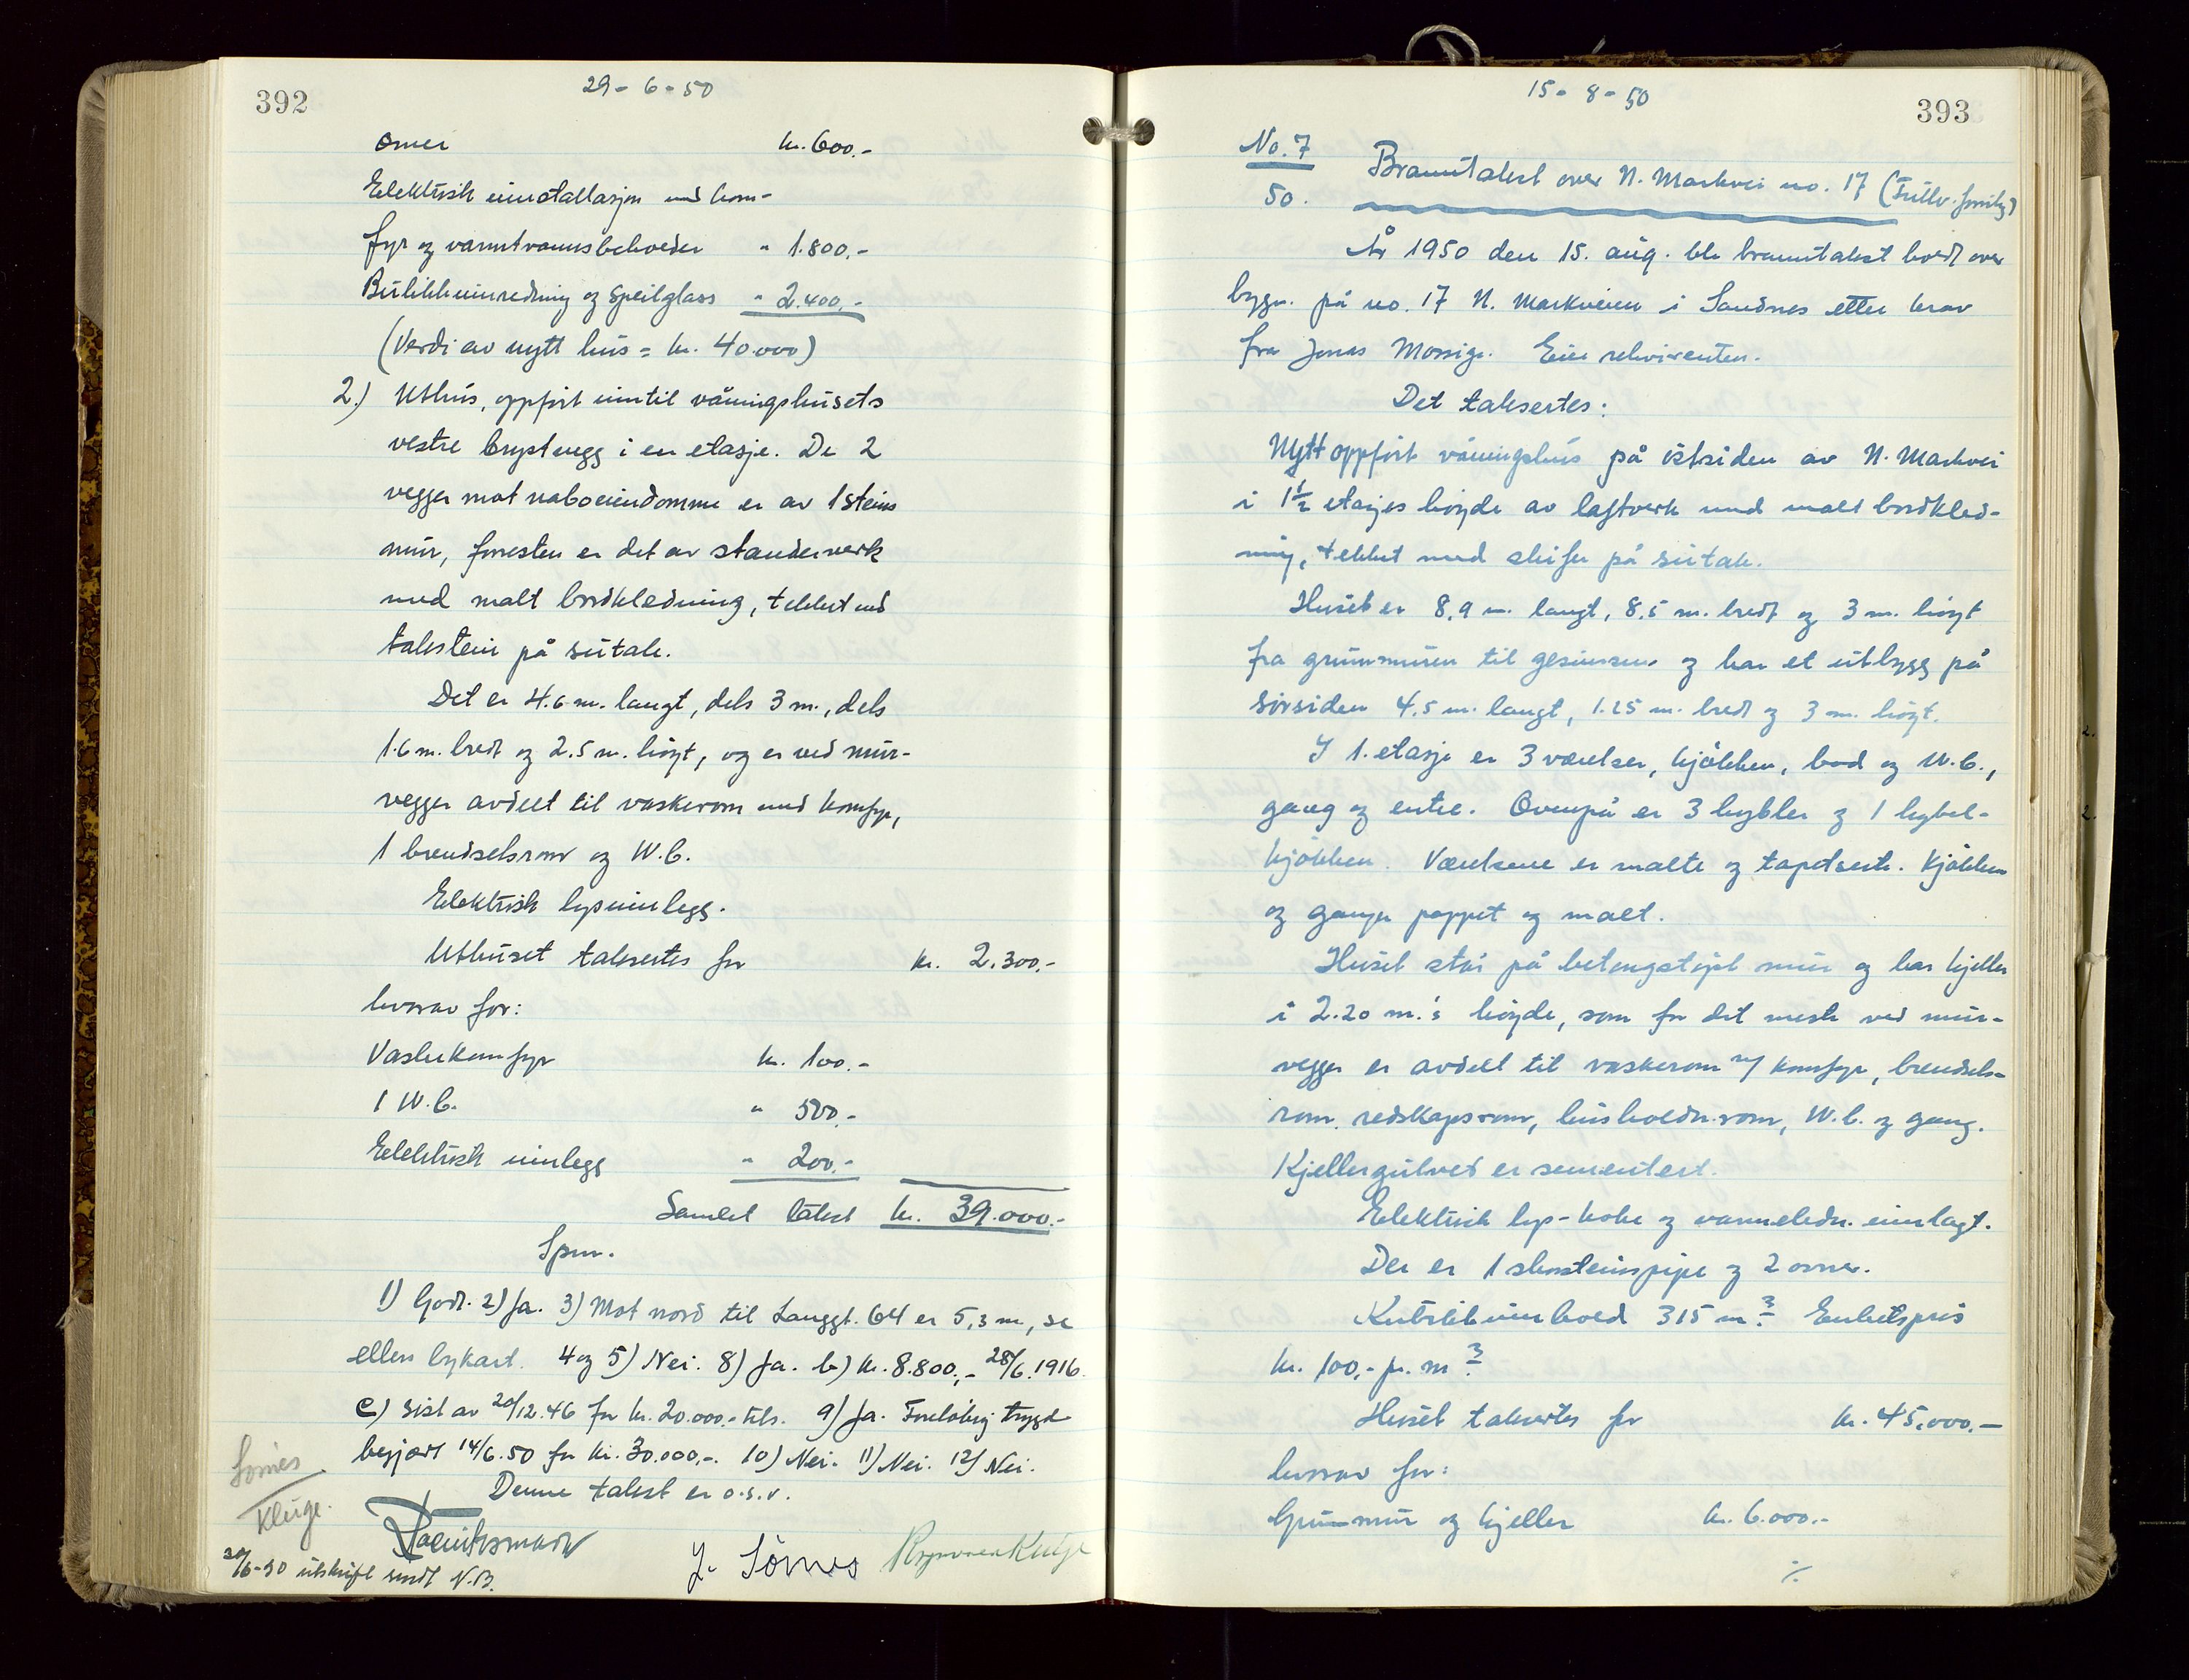 392
29-6-50
Ovner kr. 600.-
Elektrisk innstallasjon med kom-
fyr og varmtvannsbeholder " 1.800.-
Butikkinnredning og speilglass " 2.400.-
(Verdi av nytt hus = kr. 40.000)
2.) Uthus, oppført inntil våningshusets
vestre brystvegg i en etasje. De 2
vegger mot naboeiendomme er av 1 steins
mur, forresten er det av standerverk
med malt bordkledning, tekket med
takstein på sutak.
Det er 4.6 m. langt, dels 3 m., dels
1.6 m. bredt og 2.5 m. høyt, og er ved mur-
vegger avdelt til vaskerom med komfyr,
1 brendselsrom og W.C.
Elektrisk lysinnlegg.
Uthuset taksertes for kr. 2.300.-
hvorav for:
Vaskekomfyr kr. 100.-
1 W.C. " 500.-
Elektrisk innlegg " 200.-
Samlet takst kr. 39.000.-
Spm.
1) Godt. 2) Ja. 3) Mot nord til Langgt. 64 er 5,3 m, se
ellers bykart. 4 og 5) Nei. 8) Ja. b) kr. 8.800,- 28/6.1916.
c) Sist av 20/12.46 for kr. 20.000.- 9) Ja. Foreløbig trygd
begjært 14/6.50 for kr. 30.000.-. 10) Nei. 11) Nei. 12) Nei.
Denne takst er o.s.v.
Sømes
Kluge.
J. Sømes
30/6-50 utskrift sendt N.B.
393
15-8-50
No. 7
50.
Branntakst over N. Markvei no. 17
År 1950 den 15. aug. ble branntakst holdt over
bygn. på no. 17 N. Markveien i Sandnes etter krav
fra Jonas Mossige. Eier rekvirenten.
Det taksertes:
Nytt oppført våningshus på østsiden av N. Markvei
i 1 1/2 etasjes høyde av laftverk med malt bordkled-
ning, tekket med skifer på sutak.
Huset er 8,9 m. langt, 8,5 m. bredt og 3 m. høyt
fra grunnmuren til gesimsen og har et utbygg på
sørsiden 4,5 m. langt, 1.25 m. bredt og 3 m. høyt.
I 1. etasje er 3 værelser, kjøkken, bad og W.C.,
gang og entre. Ovenpå er 3 hybler og 1 hybel-
kjøkken. Værelsene er malte og tapetserte. Kjøkken
og ganger pappet og malt.
Huset står på betongstøpt mur og har kjeller
i 2.20 m.'s høyde, som for det meste ved mur-
vegger er avdelt til vaskerom m/ komfyr, brendsels-
rom, redskapsrom, husholdn.rom, W.C. og gang.
Kjellergulvet er sementert.
Elektrisk lys-koke og varmeledn. innlagt.
Der er 1 skorsteinspipe og 2 ovner.
Kubikkinnhold 315 m3. Enhetspris
kr. 100,- pr. m3.
Huset taksertes for kr. 45.000.-
hvorav for:
Grunnmur og kjeller kr. 6.000.-
./.